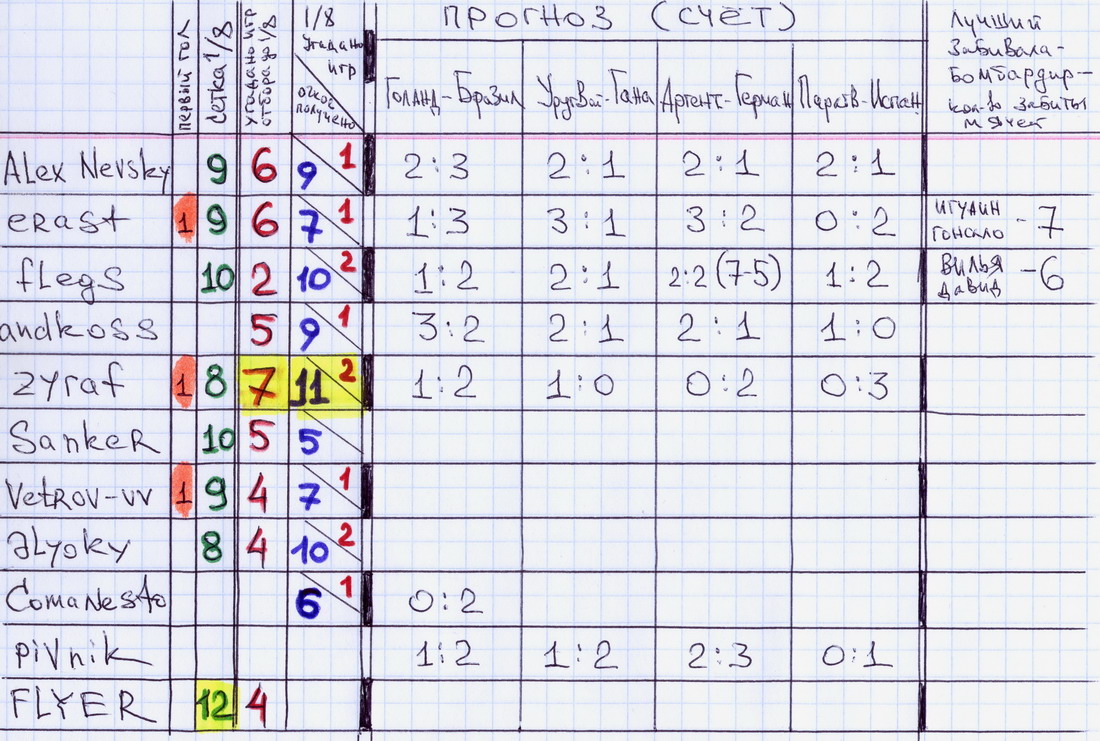 ПРОГНОЗ (СЧЁТ)
первый гол
Сетка 1/8
Угадано игр
отбора до 1/8
1/8
Угадано
игр
очков
получено
Голанд-Бразил
Уругвай-Гана
Аргент-Герман
Парагв-Испан
Лучший
Забивала-
Бомбардир-
кол-во забиты
мячей
Alex Nevsky 9 6 9 1 2:3 2:1 2:1 2:1
erast 1 9 6 7 1 1:3 3:1 3:2 0:2 Игуаин Гонсало - 7
flegs 10 2 10 2 1:2 2:1 2:2 (7-5) 1:2 Вилья Давид - 6
andkoss 5 9 1 3:2 2:1 2:1 1:0
zyraf 1 8 7 11 2 1:2 1:0 0:2 0:3
SankeR 10 5 5
VetRov-vv 1 9 4 7 1
aLyoky 8 4 10 2
ComaNesto 6 1 0:2
piVnik 1:2 1:2 2:3 0:1
FLYER 12 4